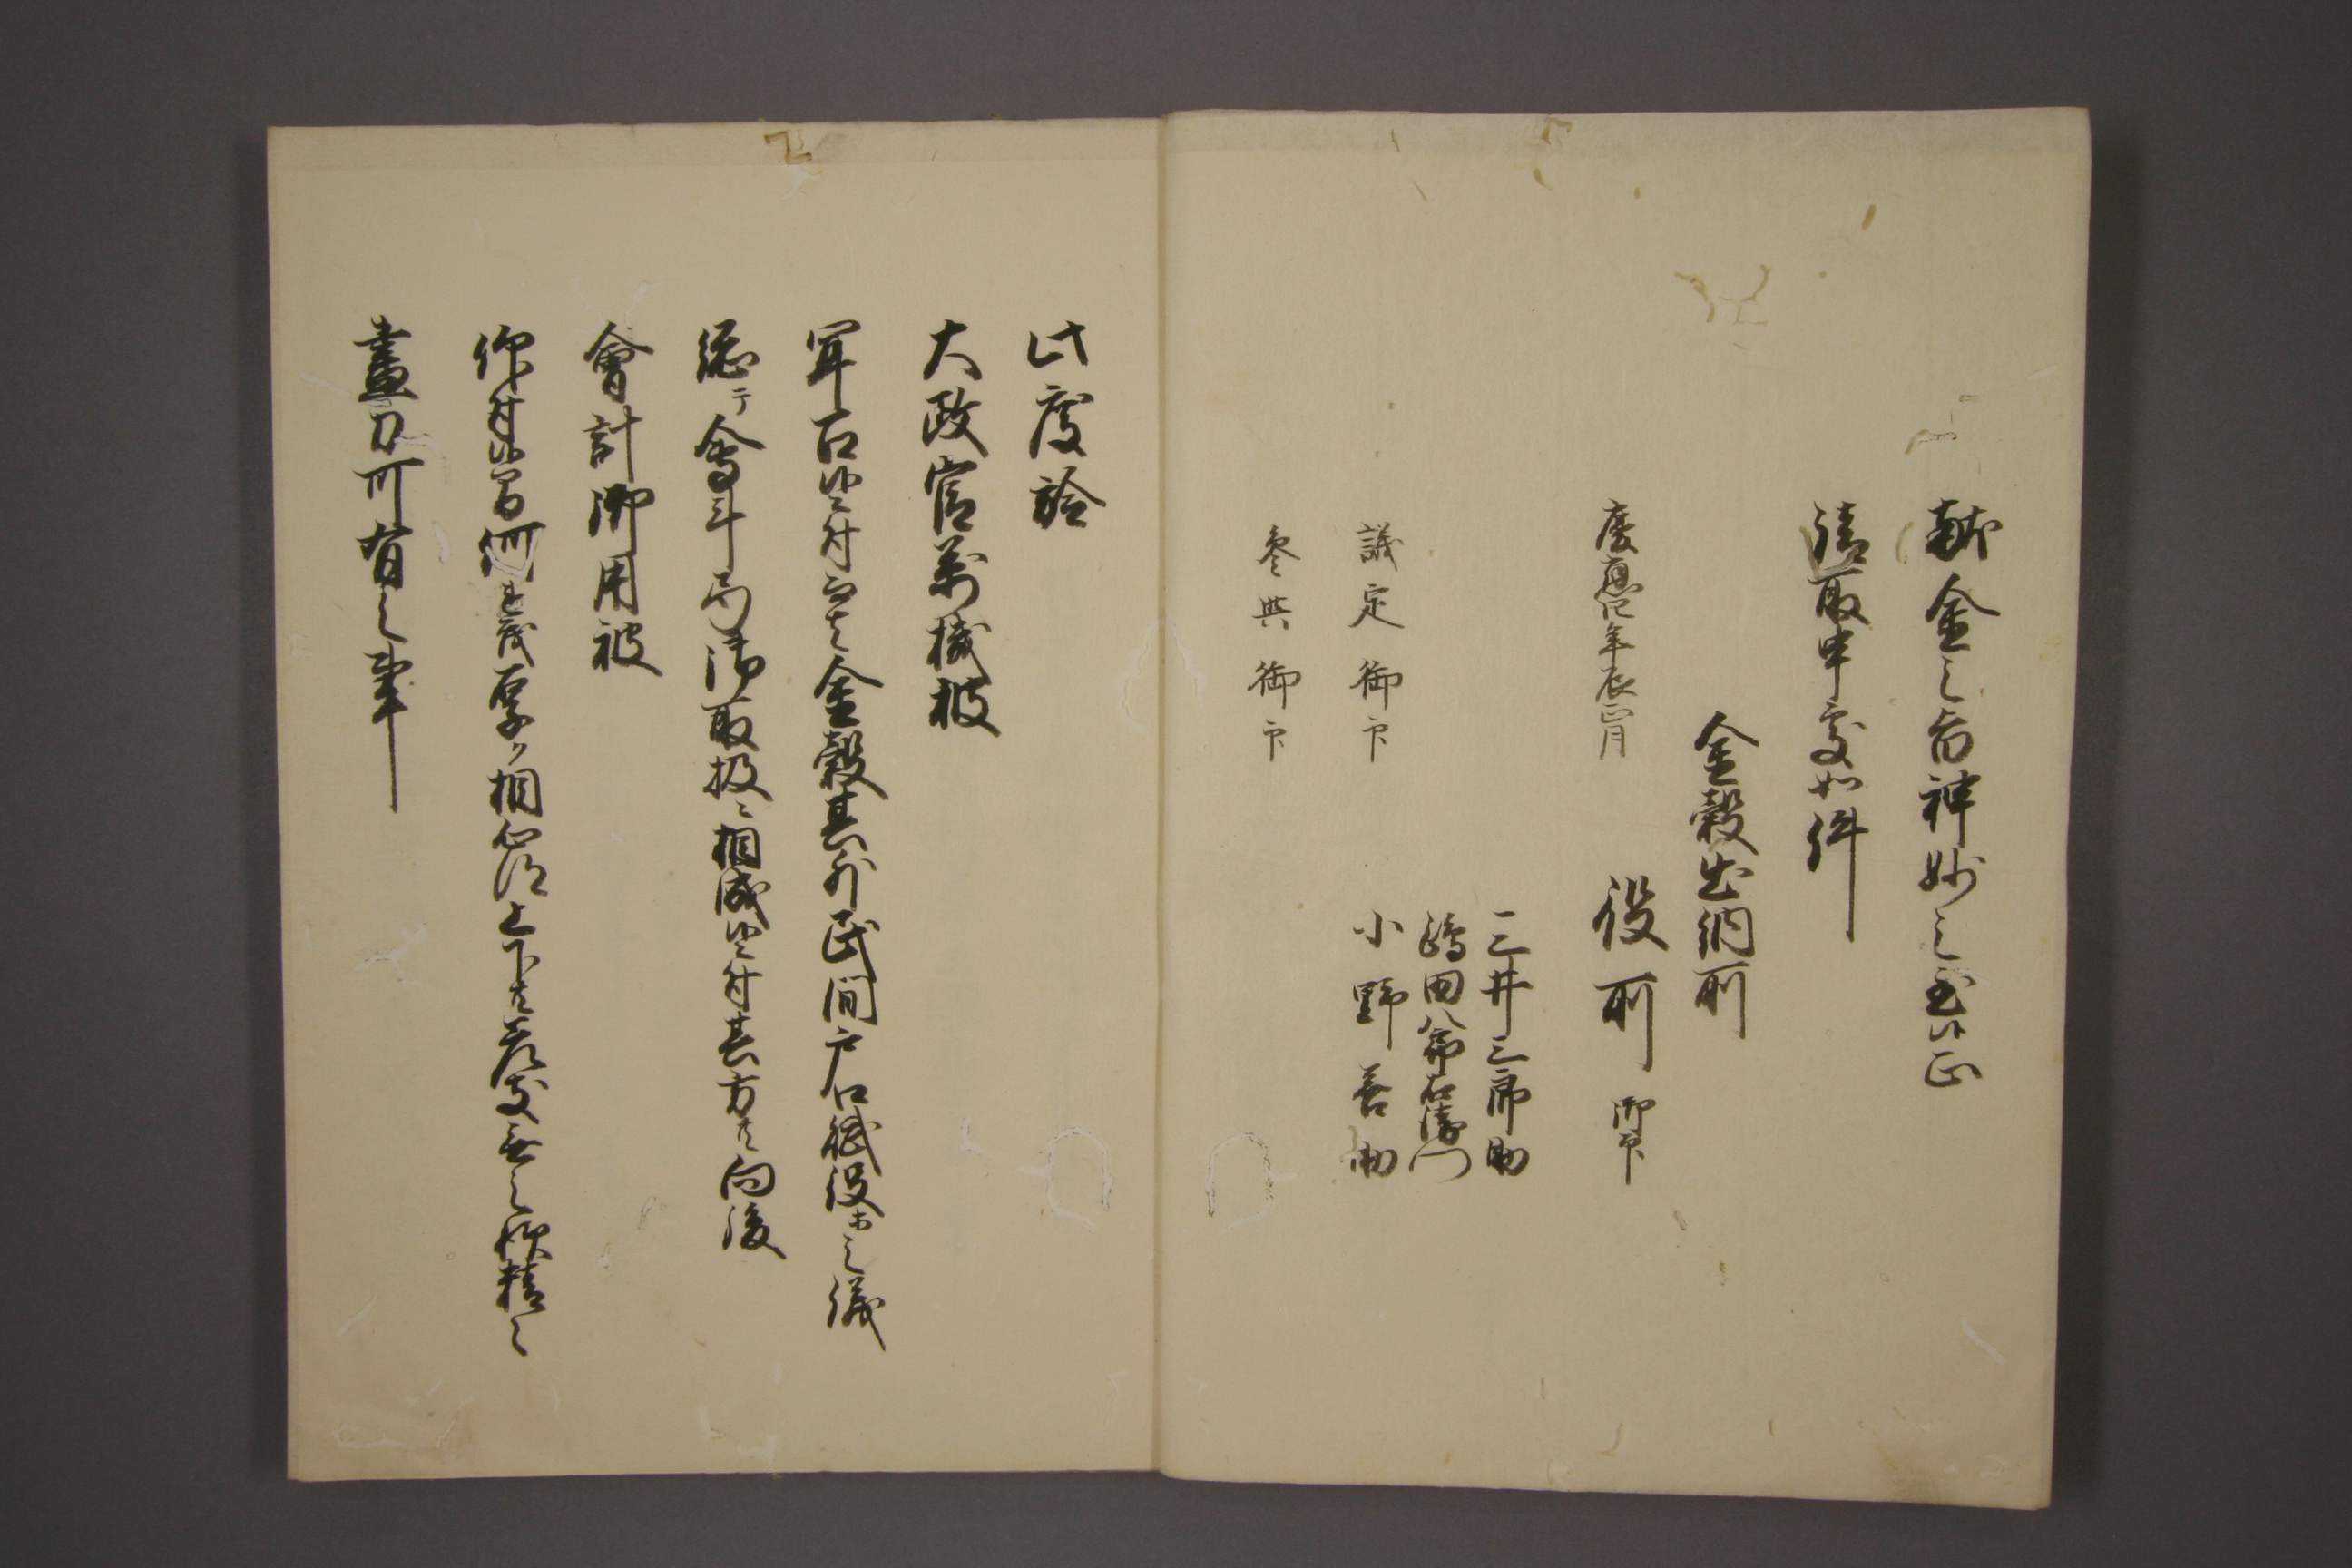 献金之旨神妙之至候正
請取申処如件
金穀出納所
慶應四年辰正月
役所 御印
三井三郎助
嶋田八郎右衛門
小野善助
議定御印
参與御印
此度於
大政官万機被
聞召候ニ付而者金穀其外民間戸口賦役等之儀
総テ會計局御取扱ニ相成候ニ付其方共向後
會計御用被
仰付候間何連茂厚ク相心得上下共差支無之様精々
盡力可有之事